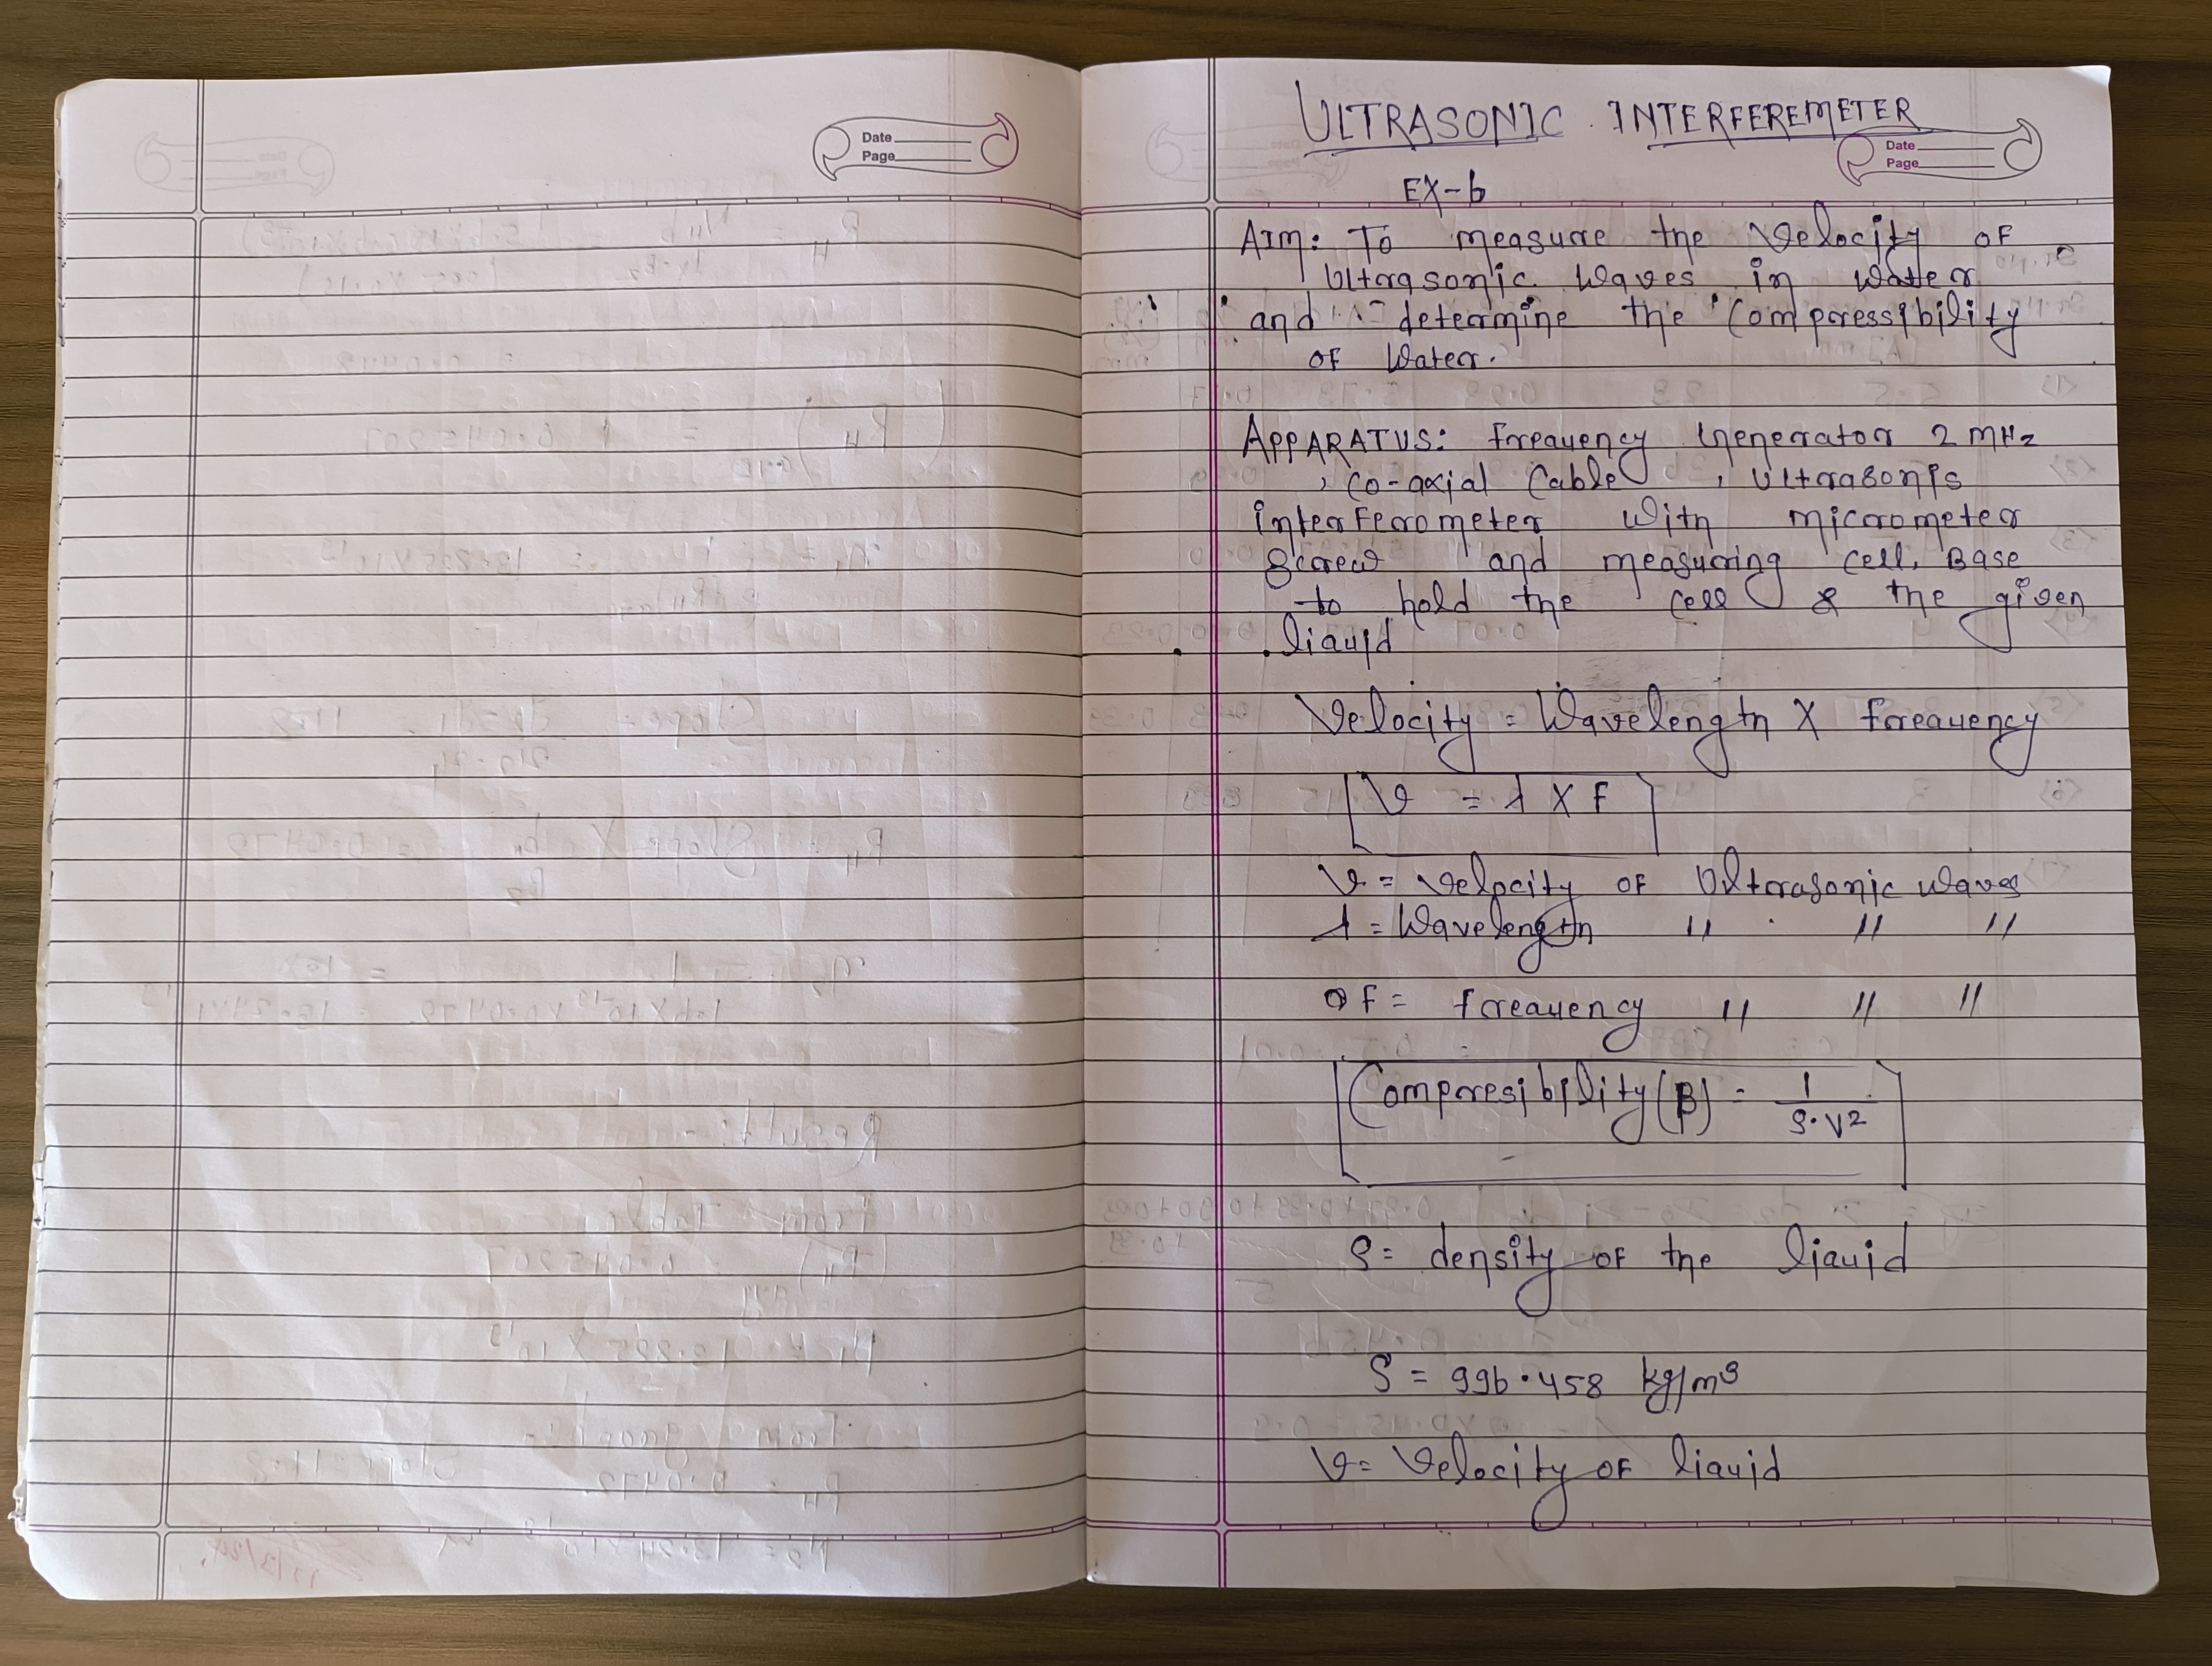 Date
Page
ULTRASONIC INTERFEREMETER
Date
Page
EX-6
AIM: To measure the Velocity OF
Ultrasonic Waves in Water
and determine the Compressibility
OF Water.
APPARATUS: Frequency Generator 2 MHz
, Co-axial Cable , Ultrasonis
interferometer with micrometer
Screw and measuring Cell, Base
to hold the Cell & the given
liquid
Velocity = Wavelength X frequency
V = λ X F
V = Velocity OF Ultrasonic waves
λ = Wavelength " " "
F = frequency " " "
Compresibility (β) = 1 / ρ·V²
ρ = density OF the liquid
ρ = 996.458 kg/m³
V = Velocity OF liquid